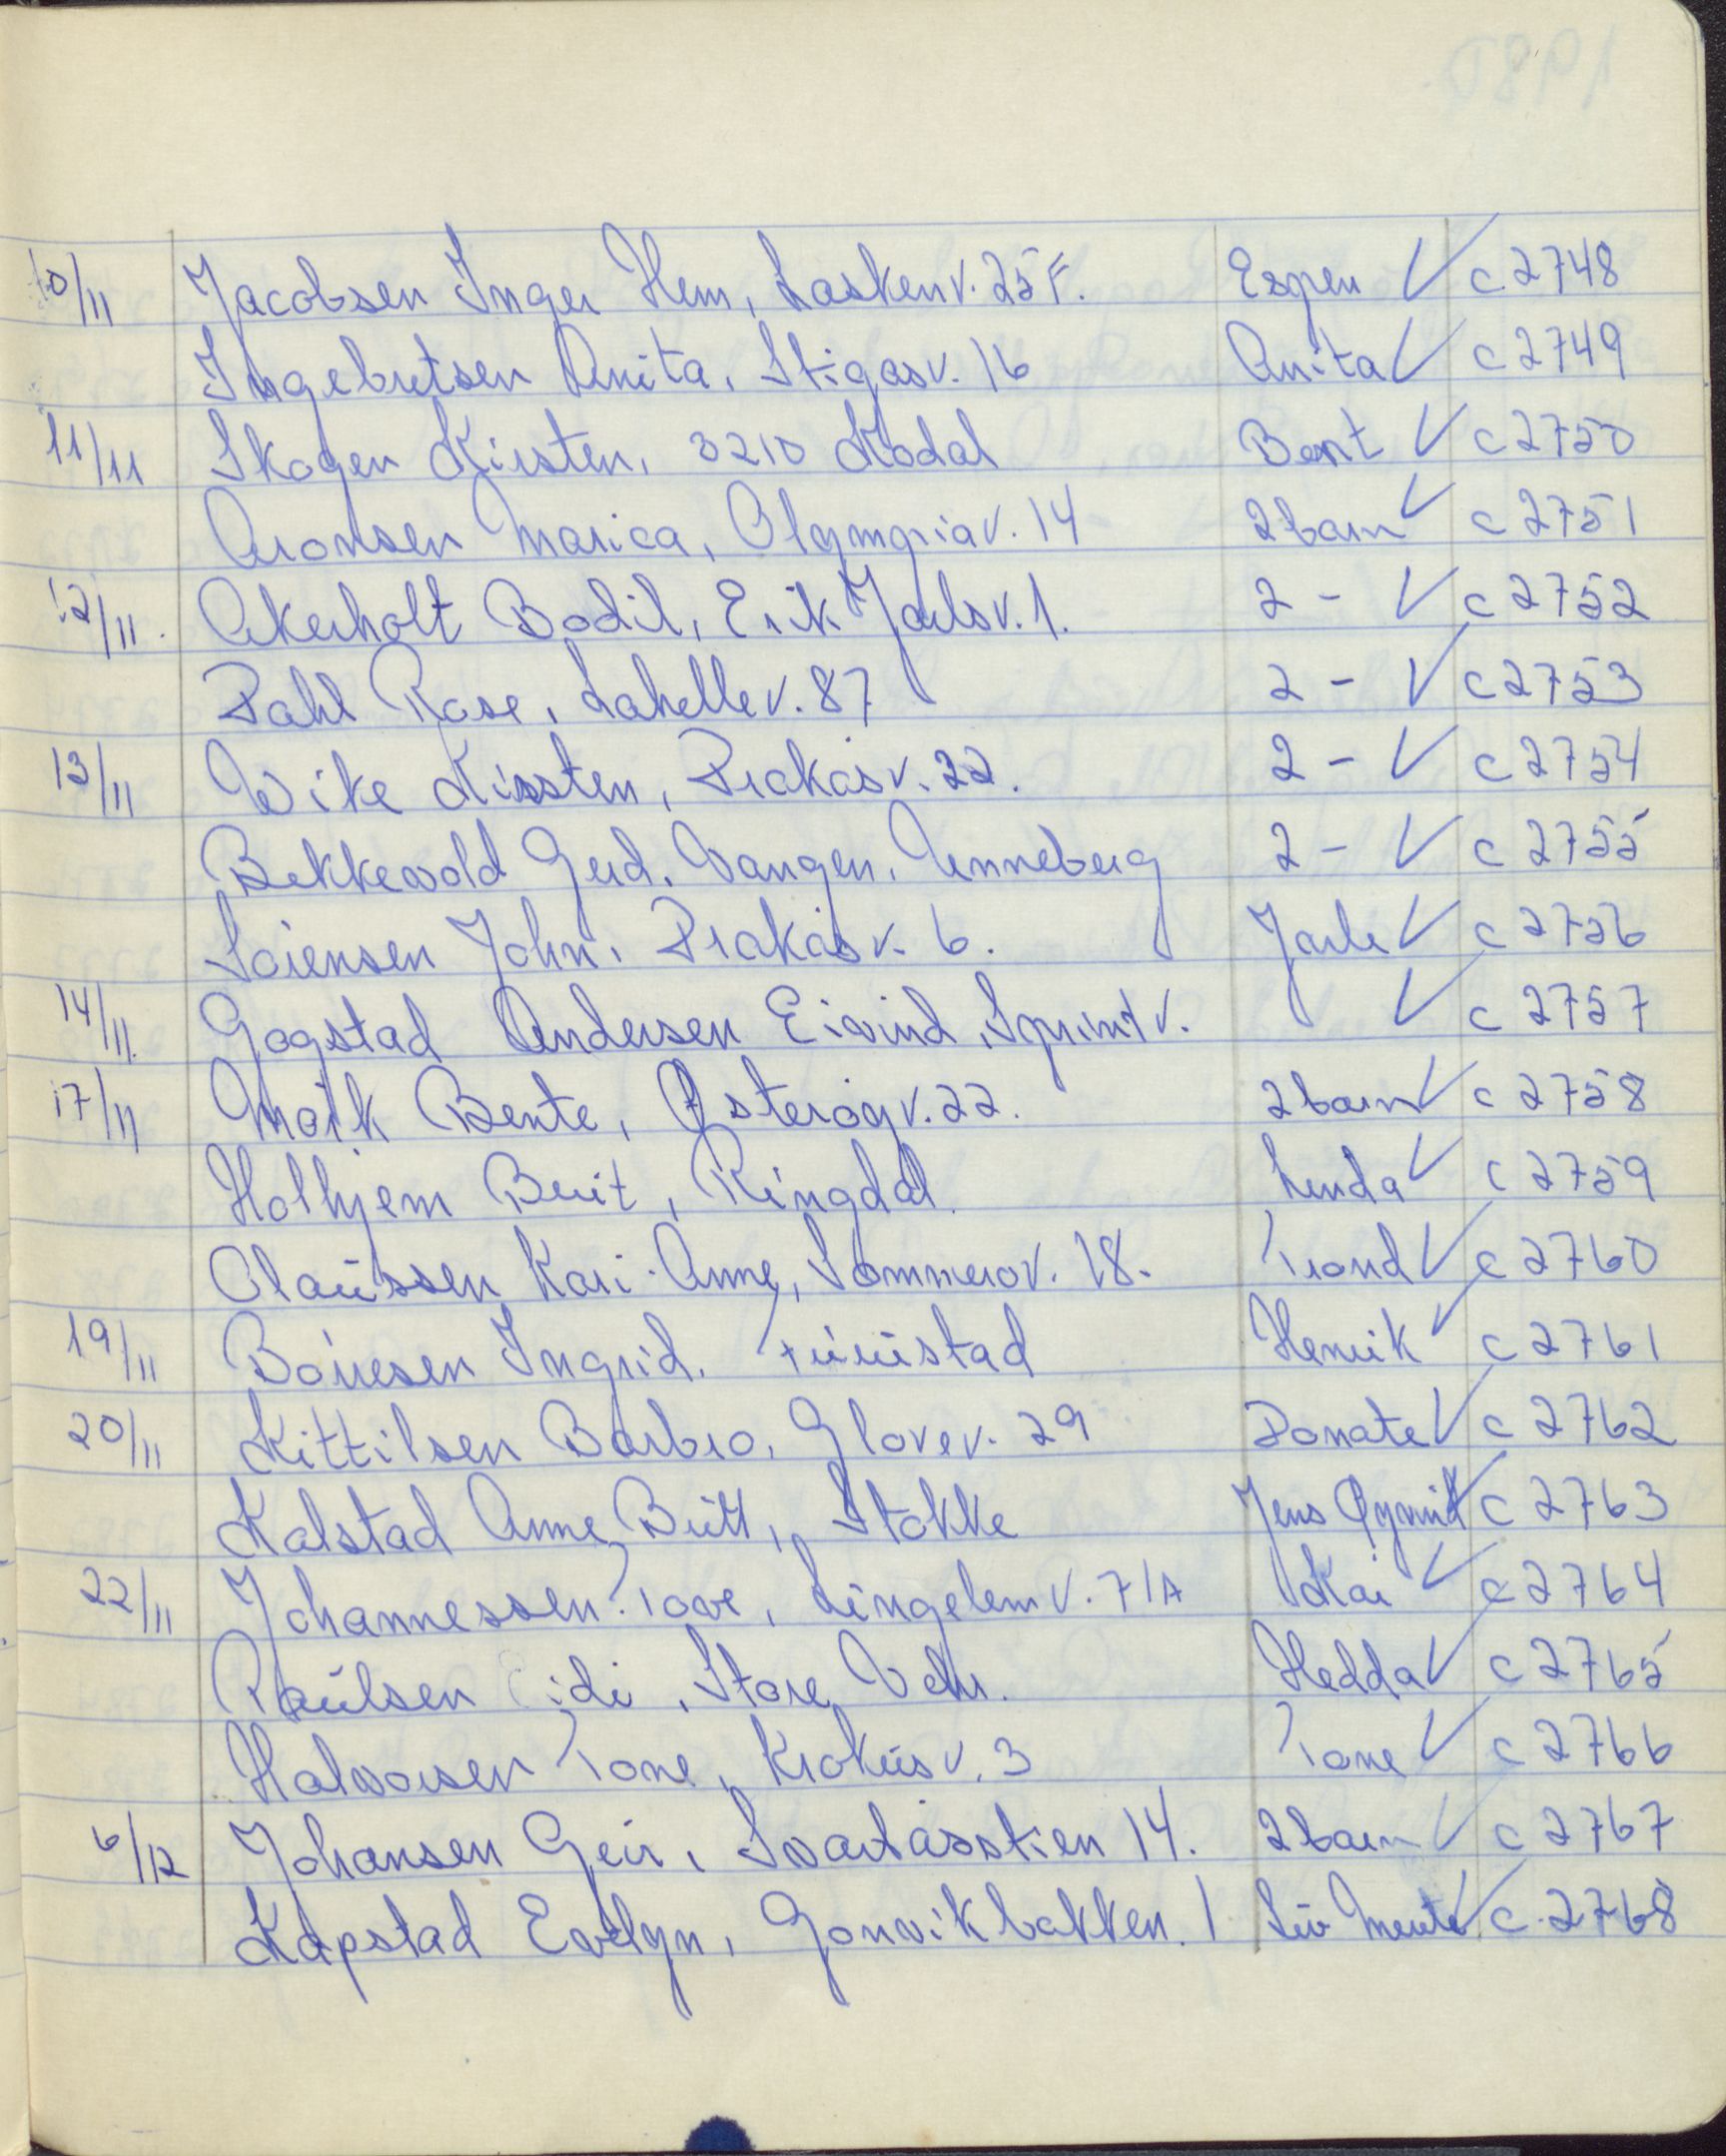 10/11 Jacobsen Inger Hem, Laskenv. 25 F. Espen ✓ c 2748
Ingebretsen Anita, Stigasv. 16 Anita ✓ c 2749
11/11 Skogen Kirsten, 3210 Kodal Bent ✓ c 2750
Aronsen Marica, Olympiav. 14 2 barn ✓ c 2751
12/11. Akerholt Bodil, Erik Jarlsv. 1. 2 - ✓ c 2752
Dahl Rose, Lahellev. 87 2 - ✓ c 2753
13/11 Wike Kirsten, Prakåsv. 22. 2 - ✓ c 2754
Bekkevold Gerd, Vangen, Unneberg 2 - ✓ c 2755
Sørensen John, Prakåsv. 6. Jarle ✓ c 2756
14/11. Gogstad Andersen Eivind, Sprintv. ✓ c 2757
17/11 Mørk Bente, Østerøyv. 22. 2 barn ✓ c 2758
Holhjem Berit, Ringdal. Linda ✓ c 2759
Olaussen Kari-Anne, Sommerov. 18. Trond ✓ c 2760
19/11 Børesen Ingrid, Furustad Henrik ✓ c 2761
20/11 Kittilsen Barbro, Glovev. 29 Donate ✓ c 2762
Kalstad Anne Britt, Stokke Jens ✓ c 2763
22/11 Johannessen Tove, Lingelemv. 71A Kai ✓ c 2764
Paulsen idi, Store Hedda ✓ c 2765
Halvorsen Tone, Krokusv. 3 Tone ✓ c 2766
6/12 Johansen Geir, Svartåsstien 14. 2 barn ✓ c 2767
Kapstad Evelyn, Gonvikbakken. 1 Liv Merete ✓ c 2768